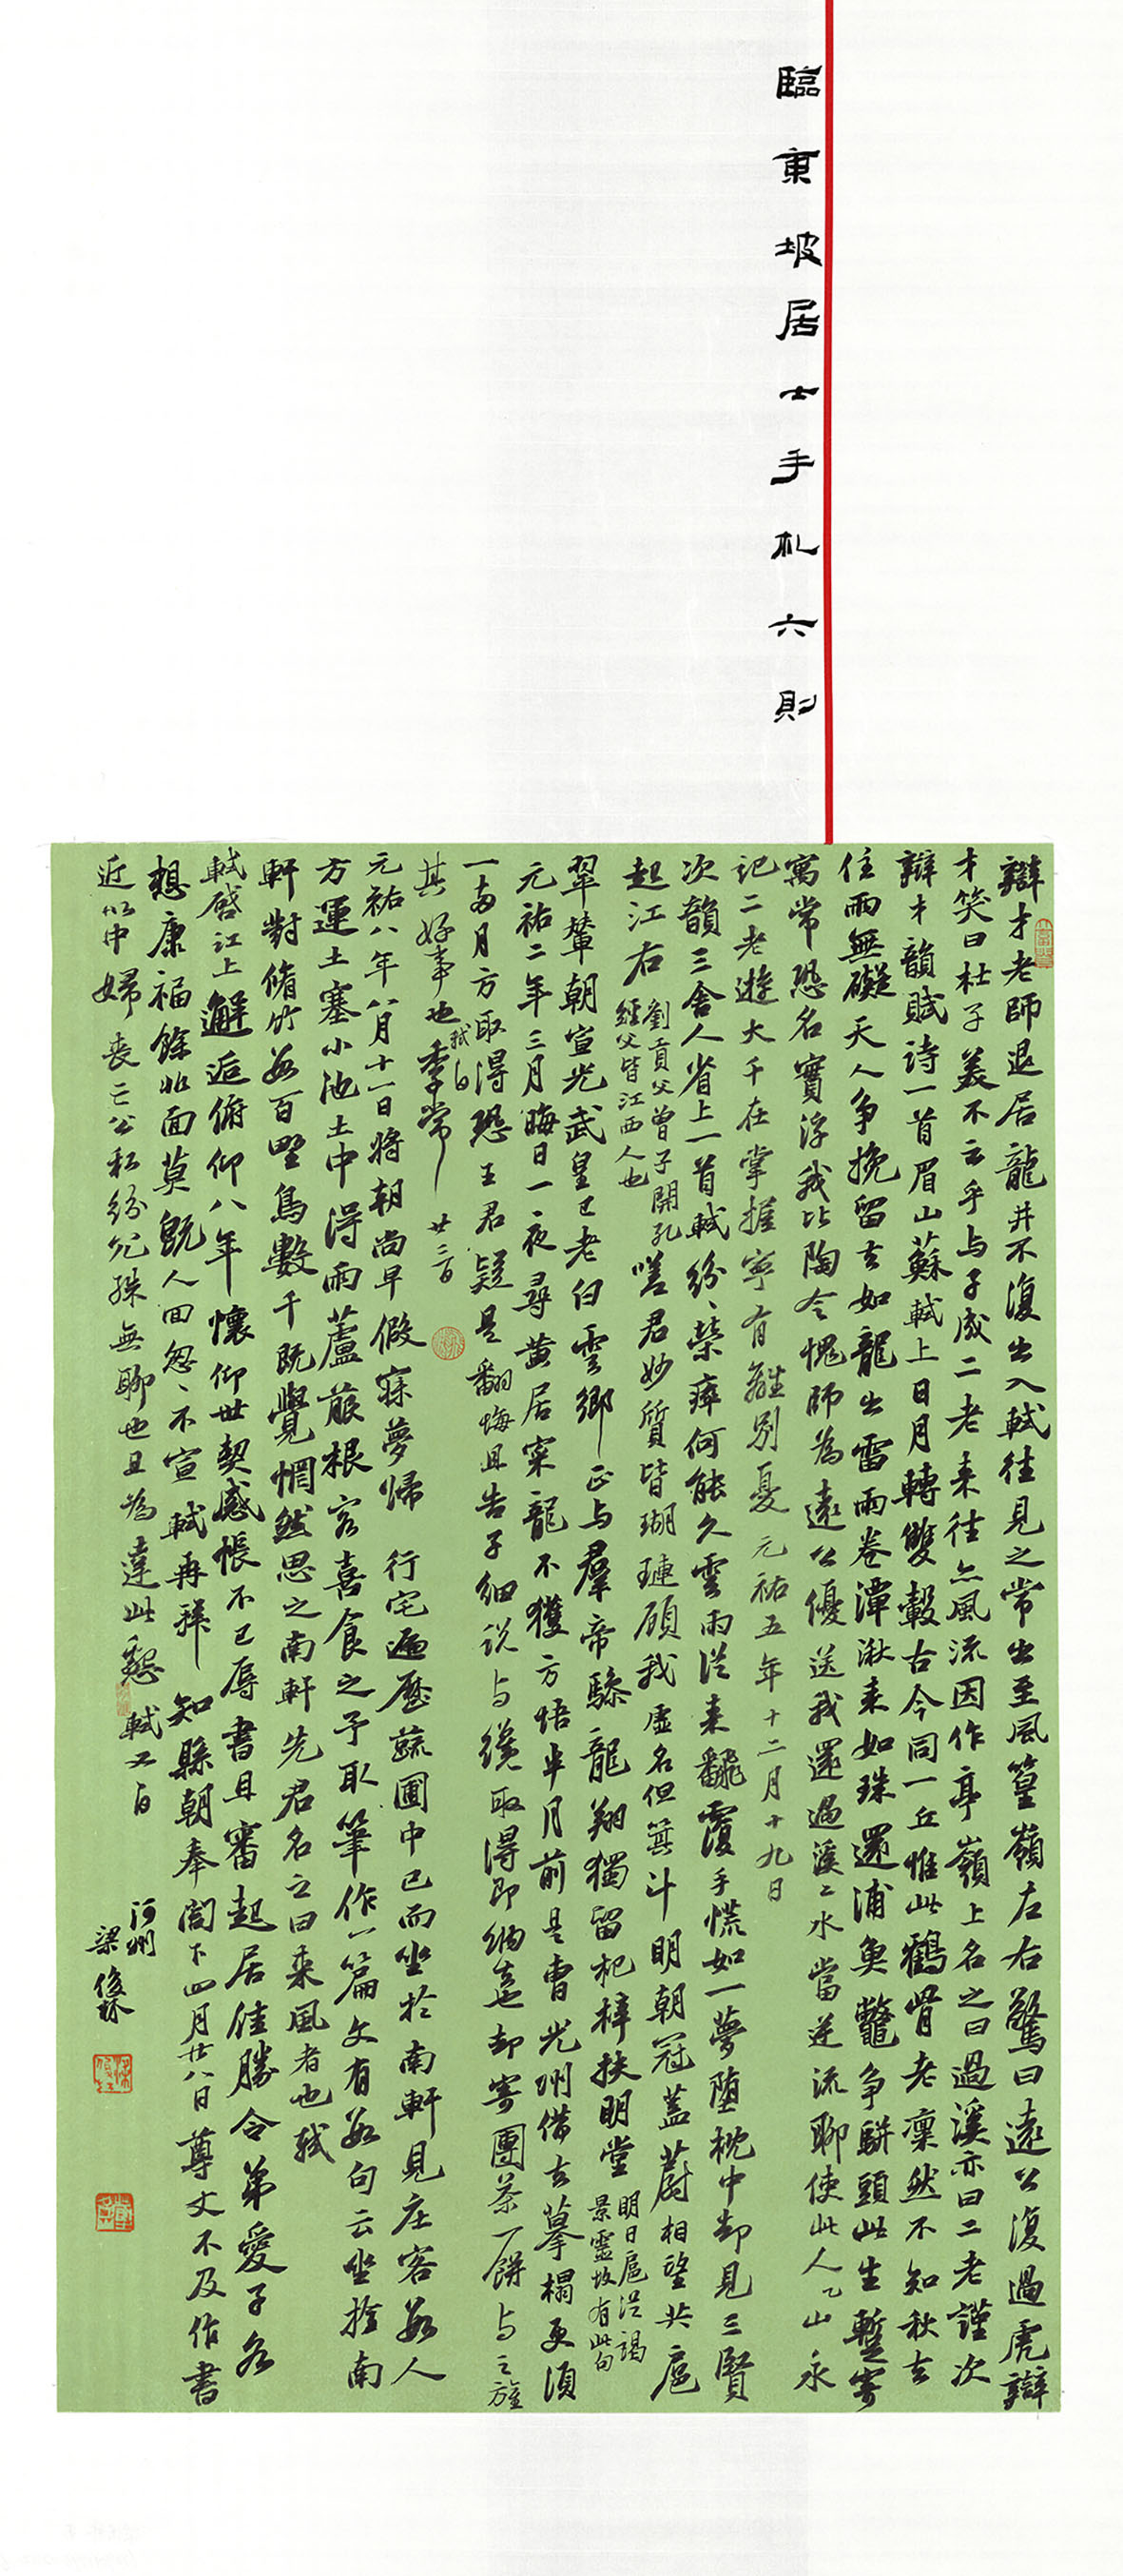 臨東坡居士手札六則
辯才老師退居龍井不復出入軾往見之常出至風篁嶺左右驚曰遠公復過虎辯
才笑曰杜子美不云乎与子成二老来往亦風流因作亭嶺上名之曰過溪亦曰二老謹次
辯才韻賦詩一首眉山蘇軾上日月轉雙轂古今同一丘惟此鶴骨老凛然不知秋去
住兩無礙天人争挽留去如龍出雷雨卷潭湫来如珠還浦魚鼈争駢頭此生暫寄
寓常恐名實浮我比陶令愧師為遠公優送我還過溪=水當逆流聊使此人=山永
記二老遊大千在掌握寧有離別憂元祐五年十二月十九日
次韻三舍人省上一首軾紛=榮瘁何能久雲雨從来翻覆手慌如一夢墮枕中却見三賢
起江右劉貢父曾子開孔經父皆江西人也嗟君妙質皆瑚璉顧我虛名但箕斗明朝冠蓋蔚相望共扈
翠輦朝宣光武皇已老白雲鄉正与羣帝驂龍翔獨留杞梓扶明堂明日扈從謁景靈故有此句
元祐二年三月晦日一夜尋黄居寀龍不獲方悟半月前是曹光州借去摹榻更須
一兩月方取得恐王君疑是翻悔且告子細說与纔取得即納去也却寄團茶一餅与之旌
其好事也軾白季常廿三日
元祐八年八月十一日將朝尚早假寐夢歸行宅遍歷蔬圃中已而坐於南軒見庄客数人
方運土塞小池土中得兩蘆菔根客喜食之予取筆作一篇文有数句云坐於南
軒對脩竹数百野鳥數千既覺惘然思之南軒先君名之曰来風者也軾
軾啓江上邂逅俯仰八年懷仰世契感悵不已辱書且審起居佳勝令弟愛子各
想康福餘非面莫既人回怱=不宣軾再拜知縣朝奉閤下四月廿八日尊丈不及作書
近以中婦喪亡公私紛冗殊無聊也且為達此懇軾又白
河州
梁俊林